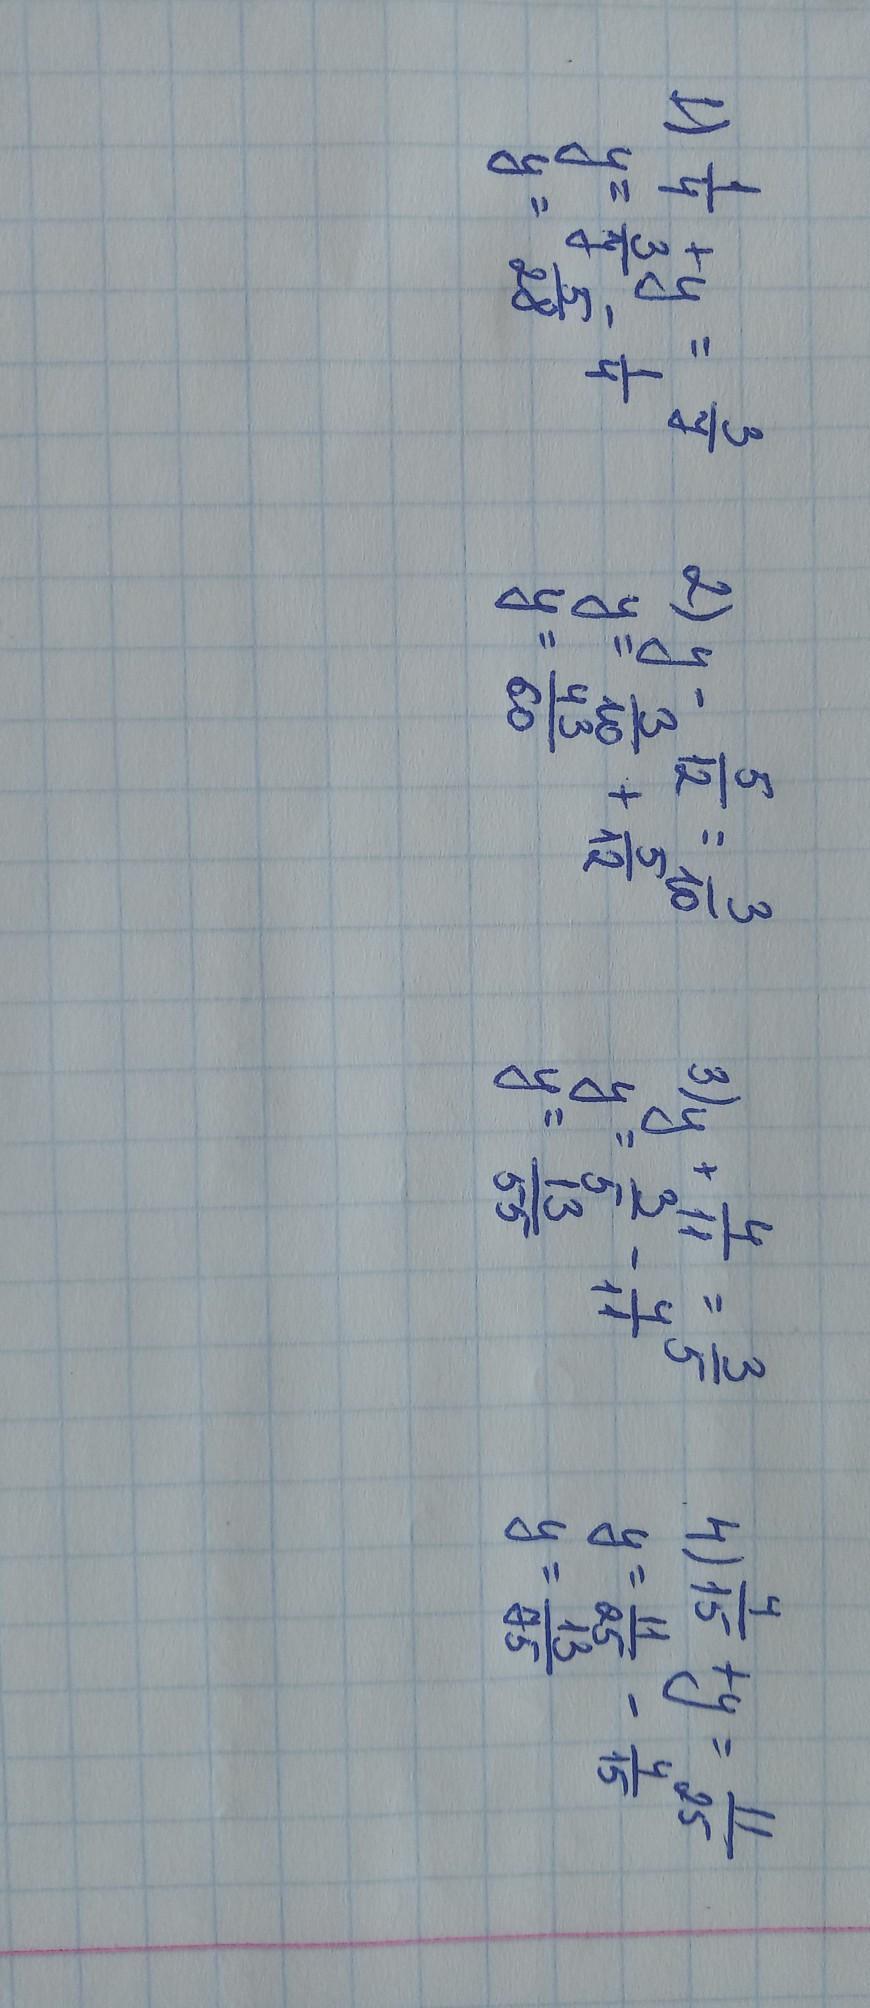 1) 1/4 + y = 3/7
y = 3/7 - 1/4
y = 5/28
2) y - 5/12 = 3/10
y = 3/10 + 5/12
y = 43/60
3) y + 4/11 = 3/5
y = 3/5 - 4/11
y = 13/55
4) 4/15 + y = 11/25
y = 11/25 - 4/15
y = 13/75